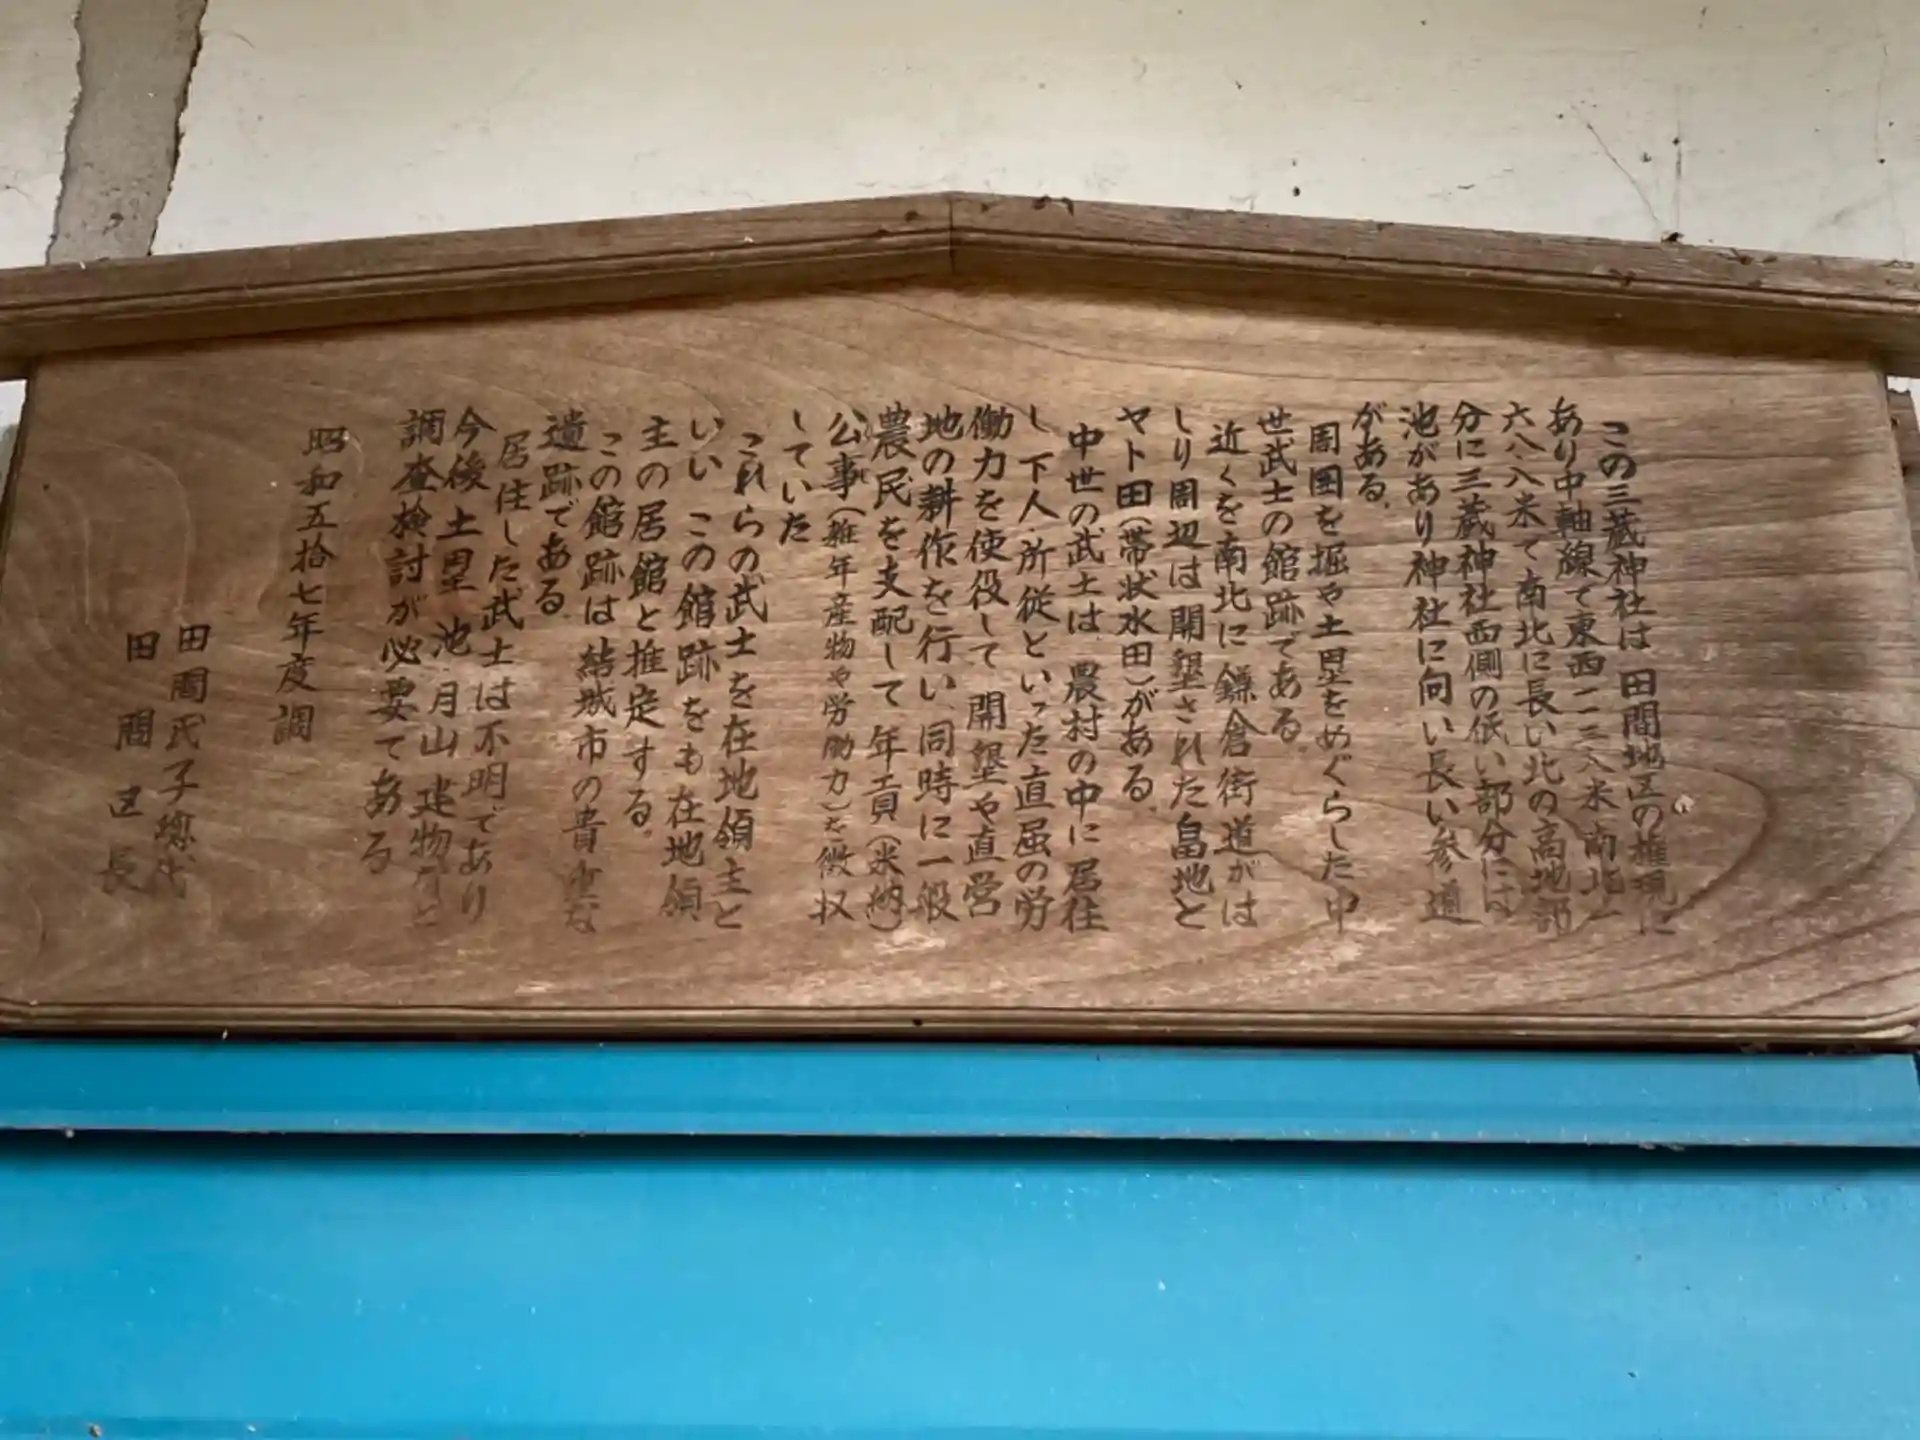 この三蔵神社は 田間地区の権現に
あり中軸線で東西一二三、八米南北一
六八、八米で南北に長い北の高地部
分に三蔵神社西側の低い部分には
池があり神社に向い長い参道
がある。
周囲を堀や土塁をめぐらした中
世武士の館跡である。
近くを南北に鎌倉街道がは
しり周辺は開墾された畠地と
ヤト田(帯状水田)がある。
中世の武士は、農村の中に居住
し、下人、所従といった直属の労
働力を使役して、開墾や直営
地の耕作を行い、同時に一般
農民を支配して、年貢(米納)
公事(雑年産物や労働力)を徴収
していた
これらの武士を在地領主と
いい この館跡をも在地領
主の居館と推定する。
この館跡は 結城市の貴重な
遺跡である
居住した武士は不明であり
今後 土塁 池、月山 建物など
調査検討が必要てある
昭和五拾七年度調
田間氏子總代
田間区長